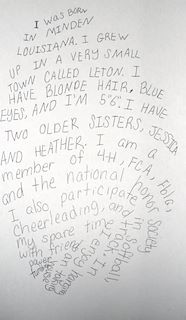 I was BORN
IN MINDEN
LOUISIANA. I GREW
UP IN A VERY SMALL
TOWN CALLED LETON. I
HAVE BLONDE HAIR, BLUE
EYES, AND I'M 5'6". I HAVE
TWO OLDER SISTERS, JESSICA
AND HEATHER. I am a
member of 4-H, FCA, FHG,
and the national honor society
I also participate in softball,
Cheerleading, and track. In
my spare time I enjoy hanging
with friends, and taking